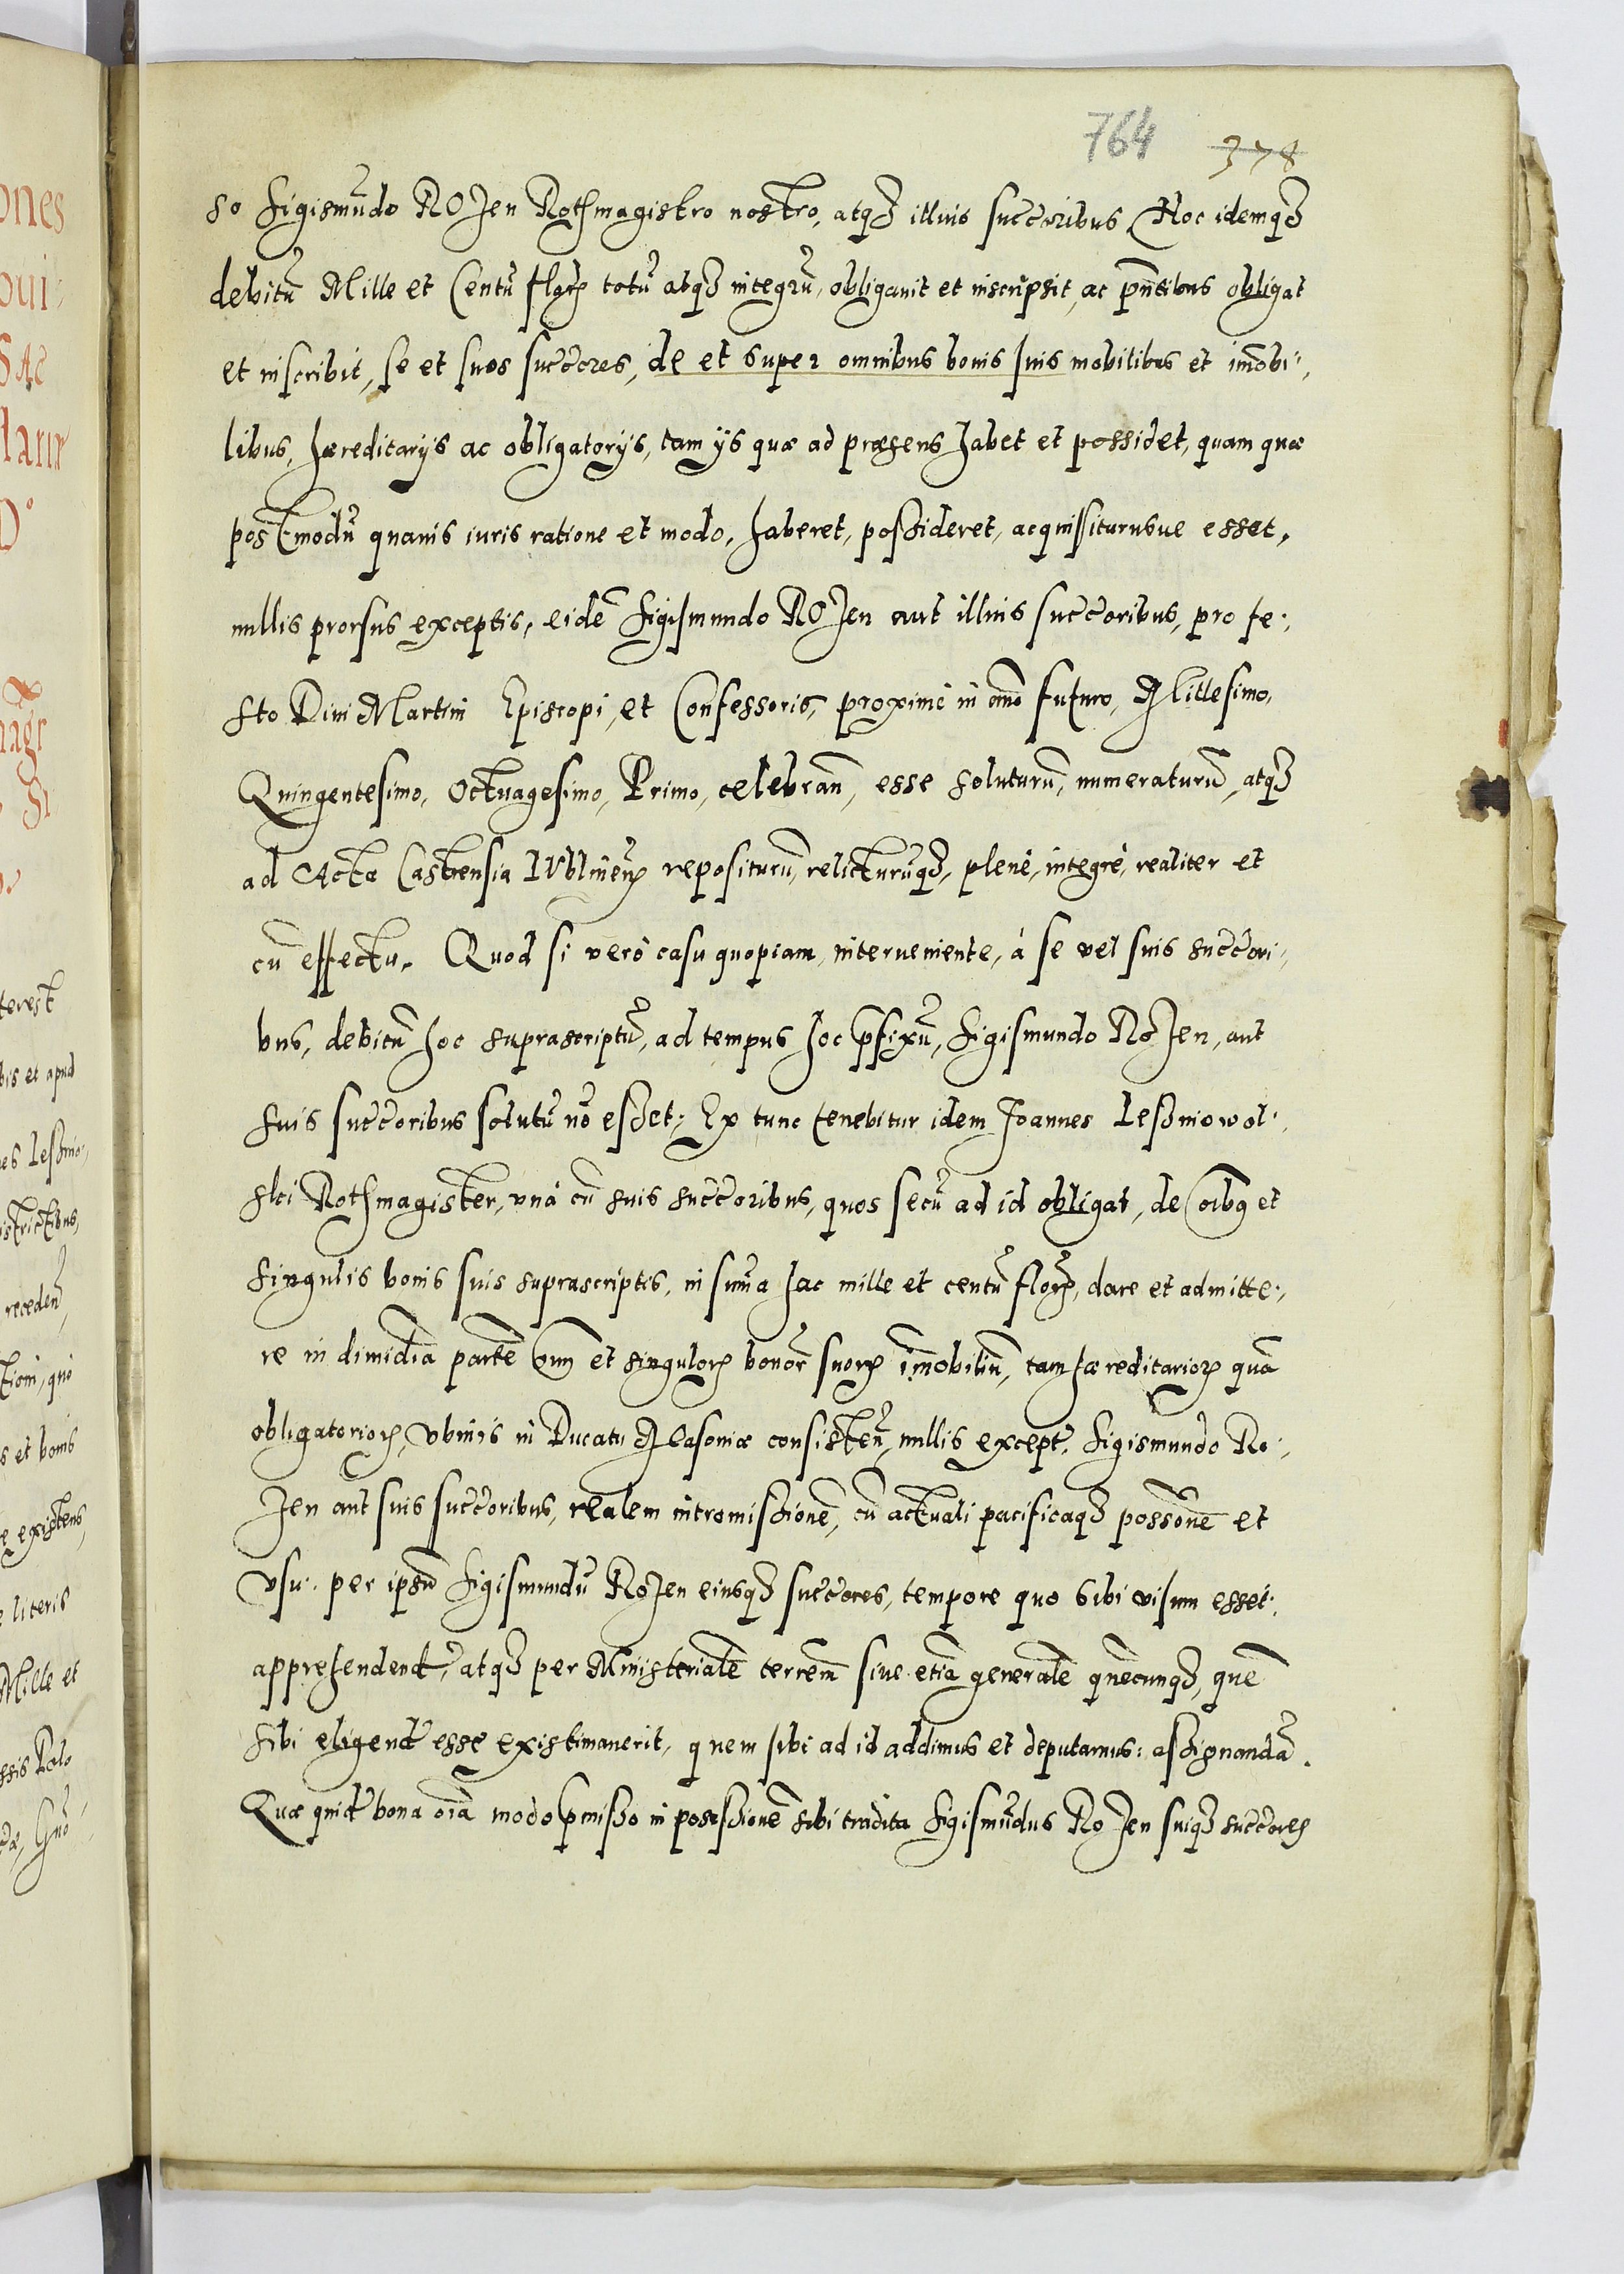 764 378
so Sigismũdo ROzen Rothmagistro nostro, atqз illius succoribus, Hoc idemqз
debitũ Mille et Centũ florꝝ totũ atqз integrũ, obligauit et inscripsit, ac pñtibus obligat
et inscribit, se et suos succores, de et super omnibus bonis suis mobilibus et imobi-,
libus, hæreditarijs ac obligatorijs, tam ijs quæ ad præsens habet et possidet, quam quæ
postmodũ quauis iuris ratione et modo, haberet, possideret, acquissiturusue esset,
nullis prorsus exceptis, eidẽ Sigismundo ROzen aut illius succoribus, pro fe-,
sto Diui Martini Episcopi, et Confessoris, proximè in āno futuro, Millesimo,
Quingentesimo, Octuagesimo, Primo, celebrañ, esse soluturũ, numeraturũ, atqз
ad Acta Castrensia lVblineñ repositurũ, relicturũqз, plenè, integrè, realiter et
cũ effectu. Quod si verò casu quopiam, interueniente, à se vel suis succori-,
bus, debitũ hoc suprascriptũ, ad tempus hoc p̱fixũ, Sigismundo Rozen, aut
suis succoribus solutũ nõ esset; Ex tunc tenebitur idem Joannes Leßniowol-,
ski Rothmagister, vnà cũ suis succoribus, quos secũ ad id obligat, de oibꝫ et
singulis bonis suis suprascriptis, in suma hac mille et centũ florꝝ, dare et admitte-,
re in dimidia partẽ oim̃ et singulorꝝ bonor̃ suorꝝ imobiliũ, tam hæreditariorꝝ quã
obligatoriorꝝ, vbiuis in Ducatu Masoniæ consisteñ, nullis except, Sigismundo Ro-,
zen aut suis succoribus, realem intromissionẽ, cũ actuali pacificaqз possonẽ et
vsu. per ipsũ Sigismundũ Rozen eiusqз succores, tempore quo sibi visum esset,
apprehendend, atqз per Ministerialẽ terrem̃ siue etiã generalẽ quẽcunqз, quẽ
sibi eligend esse existimauerit, quem sibi ad id addimus et deputamus: assignandã.
Quæ quid bona oia modo p̱misso in possessionẽ sibi tradita Sigismũdus Rozen suiqз succores